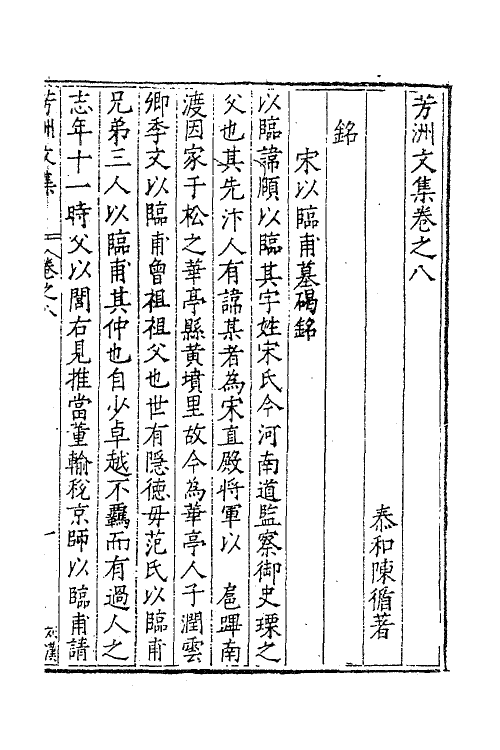 芳洲文集卷之八
泰和陳循著
銘
宋以臨甫墓碣銘
以臨諱頤以臨其字姓宋氏今河南道監察御史瑮之
父也其先汴人有諱某者為宋直殿将軍以　扈蹕南
渡因家于松之華亭縣黄墳里故今為華亭人子潤雲
卿季文以臨甫曾祖祖父也世有隠徳毋范氏以臨甫
兄弟三人以臨甫其仲也自少卓越不羈而有過人之
志年十一時父以閭右見推當董輸稅京師以臨甫請
芳洲文集　卷之八　一